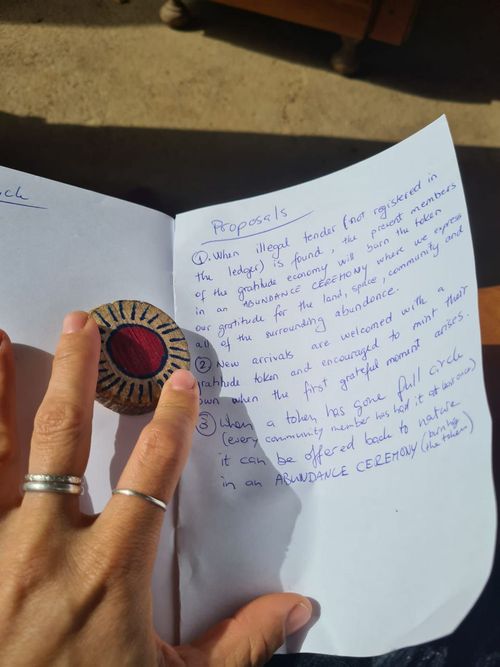 Proposals
①. When illegal tender (not registered in
the ledger) is found, the present members
of the gratitude economy will burn the token
in an ABUNDANCE CEREMONY where we express
our gratitude for the land, space, community and
all of the surrounding abundance.
② New arrivals are welcomed with a
gratitude token and encouraged to mint their
own when the first grateful moment arises.
③ When a token has gone full circle
(every community member has had it at least once)
it can be offered back to nature
in an ABUNDANCE CEREMONY (burning
the token)